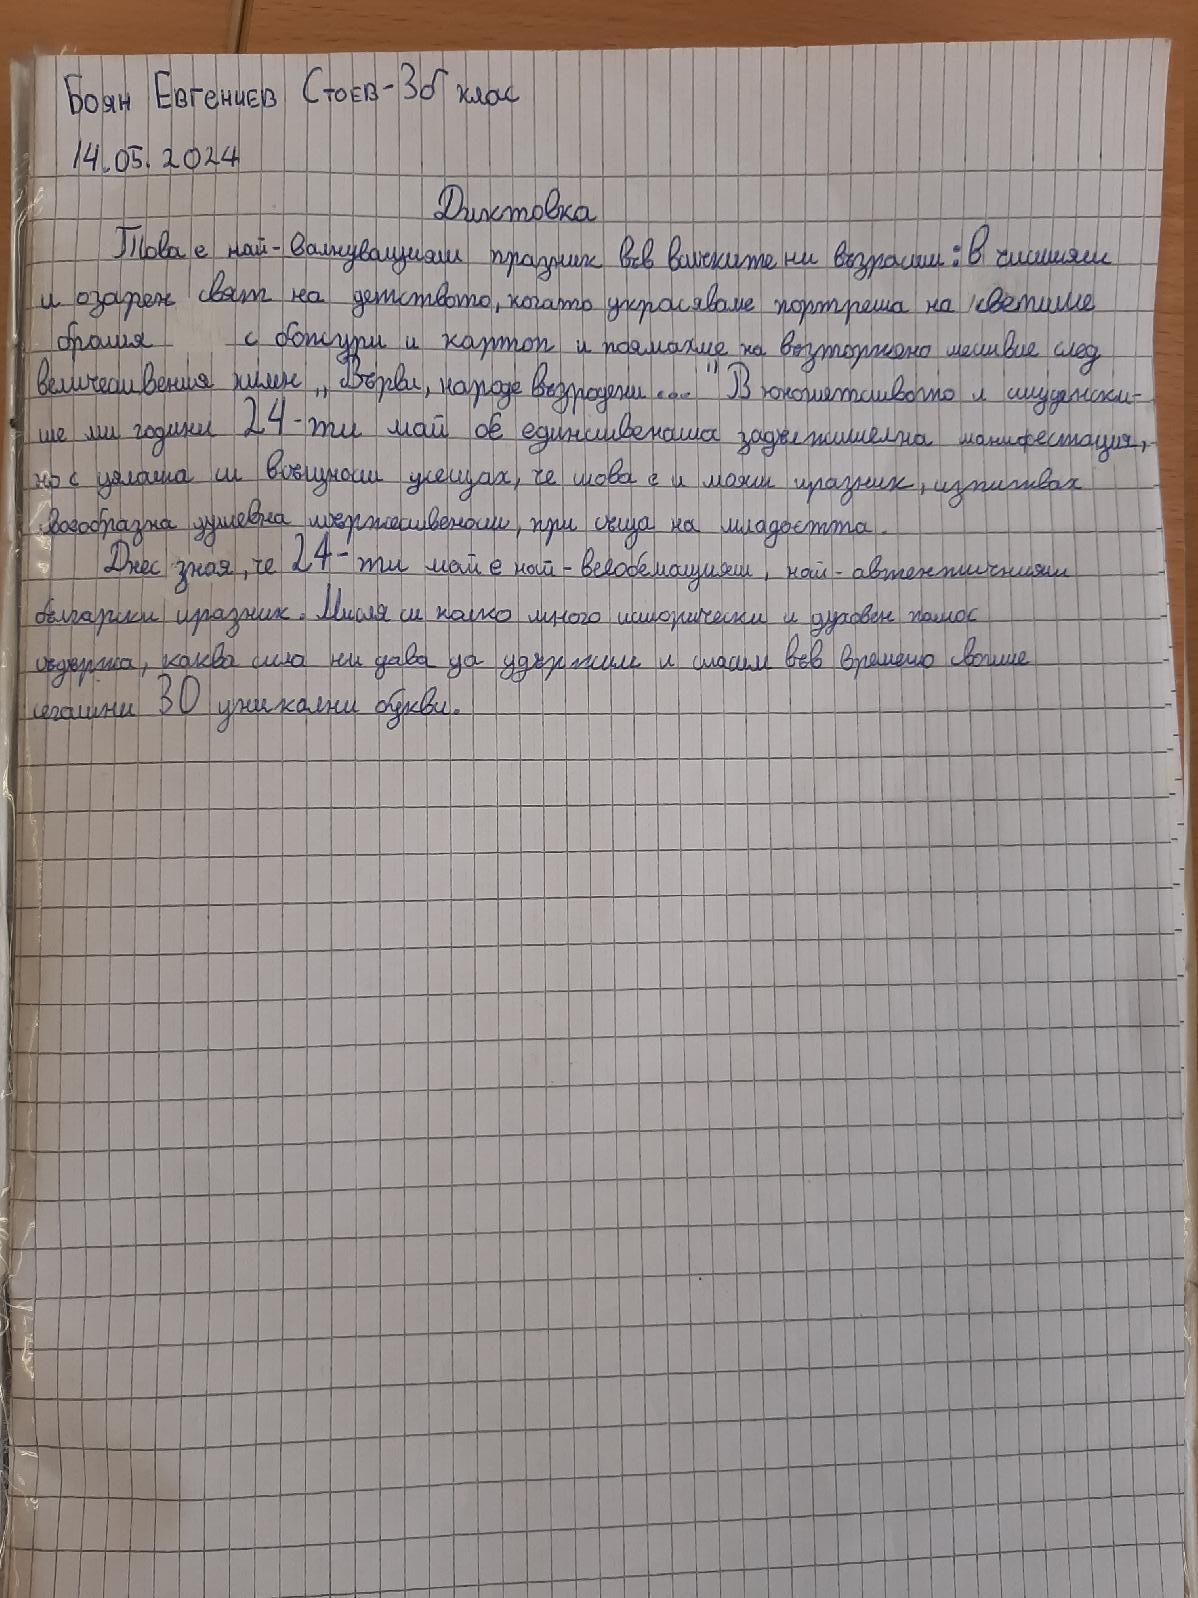 Боян Евгениев Стоев-3б клас
14.05.2024
Диктовка
Това е най-валнуващият празник във вичките ни възрасти: в чистият
и озарен свят на детството, когато украсяваме портрета на светите
братя с божури и картоп и поемахме на возторжено шествие след
величествения химн „Върви, народе възродени ..." В юношетството и студентски-
те ми години 24-ти май бе единствената задължителна манифестация,
но с цялата си всъщност усещах, че това е и моят празник, изпитвах
вособразна душевна тържественост, при съща на младостта.
Днес зная, че 24-ти май е най-всеобемащият, най-автентичният
български празник. Мисля си колко много исторически и духовен памос
съдържа, каква сила ни дава да удържим и спасим във времето своите
сегашни 30 уникални букви.